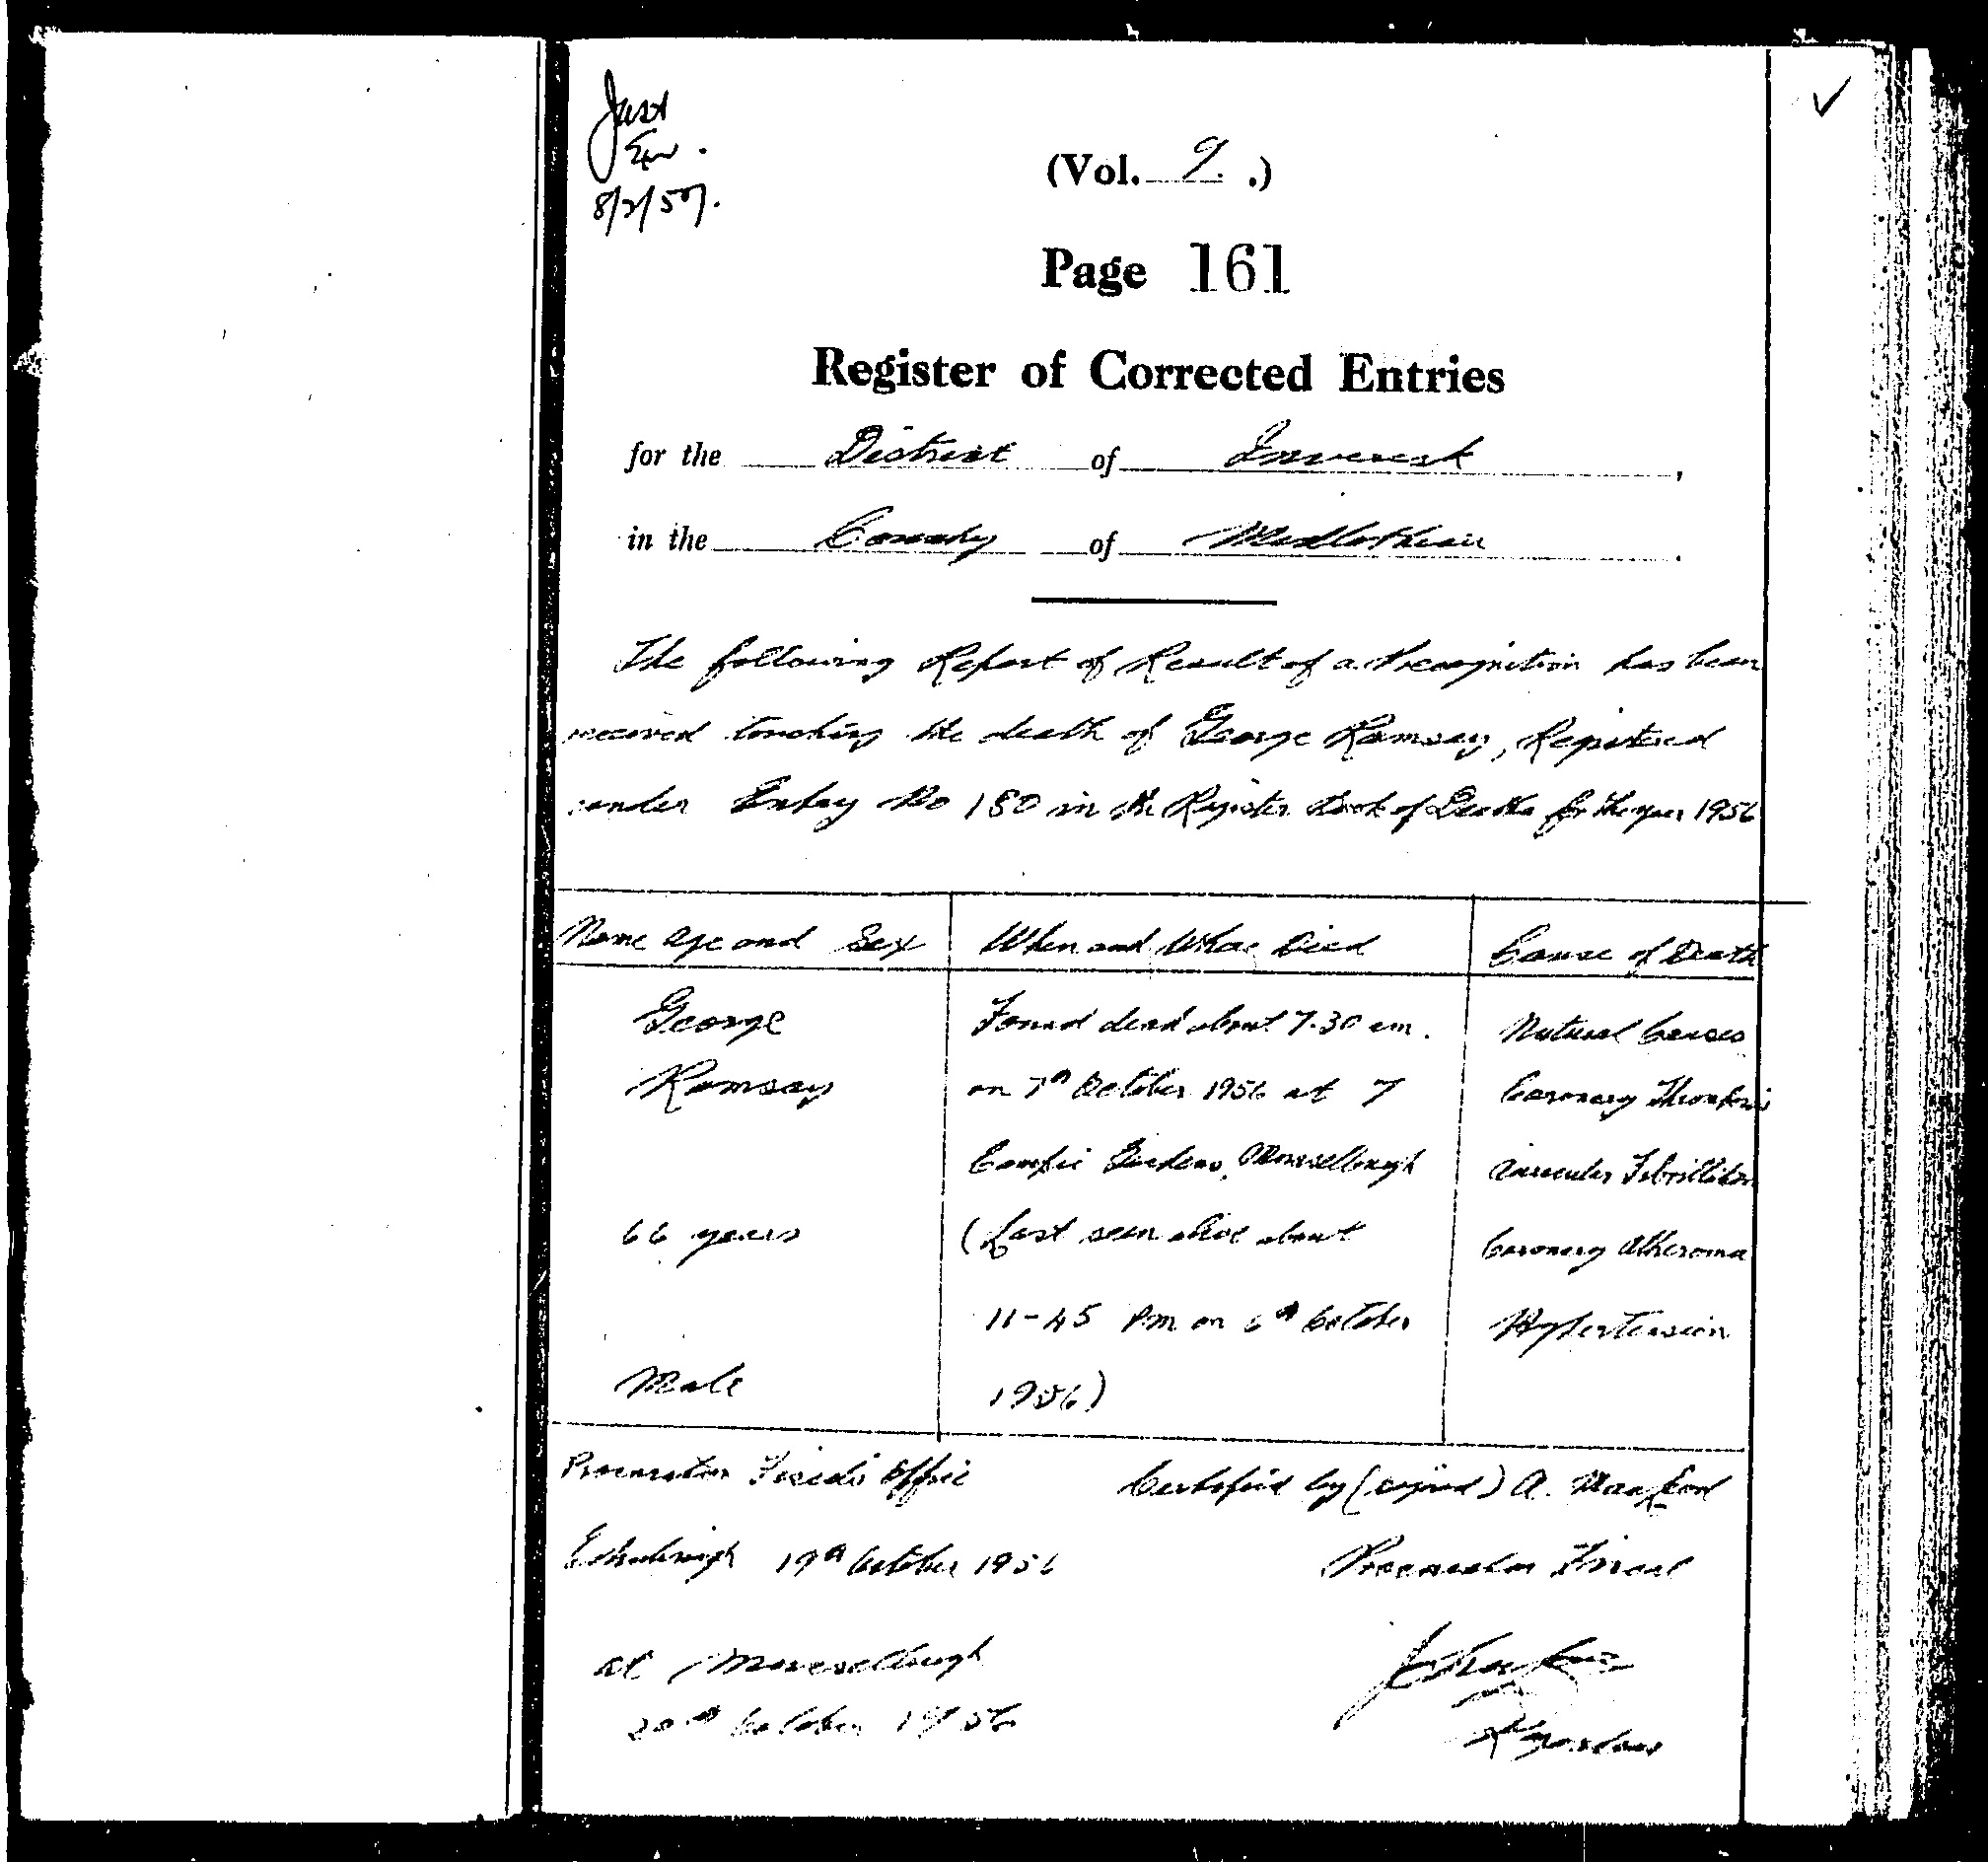 8/2/57.
(Vol. 9. .)
Page 161
Register of Corrected Entries
for the District of Inveresk,
in the County of Midlothian.
The following Report of Result of a Precognition has been
received touching the death of George Ramsay, Registered
under Entry No 180 in the Register Book of Deaths for the year 1956
Name Age and Sex When and Where Died Cause of Death
George Found dead about 7.30 am. Natural Causes
Ramsay on 7th October 1956 at 7 Coronary Thrombosis
Gardens, Musselburgh Auricular Fibrillation
66 years (Last seen alive about Coronary Atheroma
11-45 PM on 6th October Hypertension
Male 1956)
Procurator Fiscal's Office Certified by (signed) A.
Edinburgh 19th October 1956 Procurator Fiscal
at Musselburgh
20th October 1956 Registrar